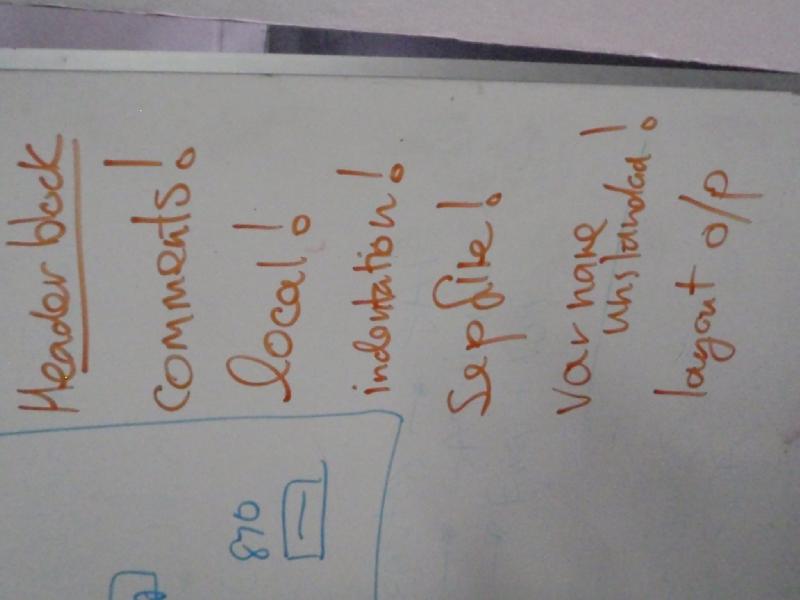 Header block
comments!
local!
indentation!
Sep file!
var name
unstandad!
layout o/p
870